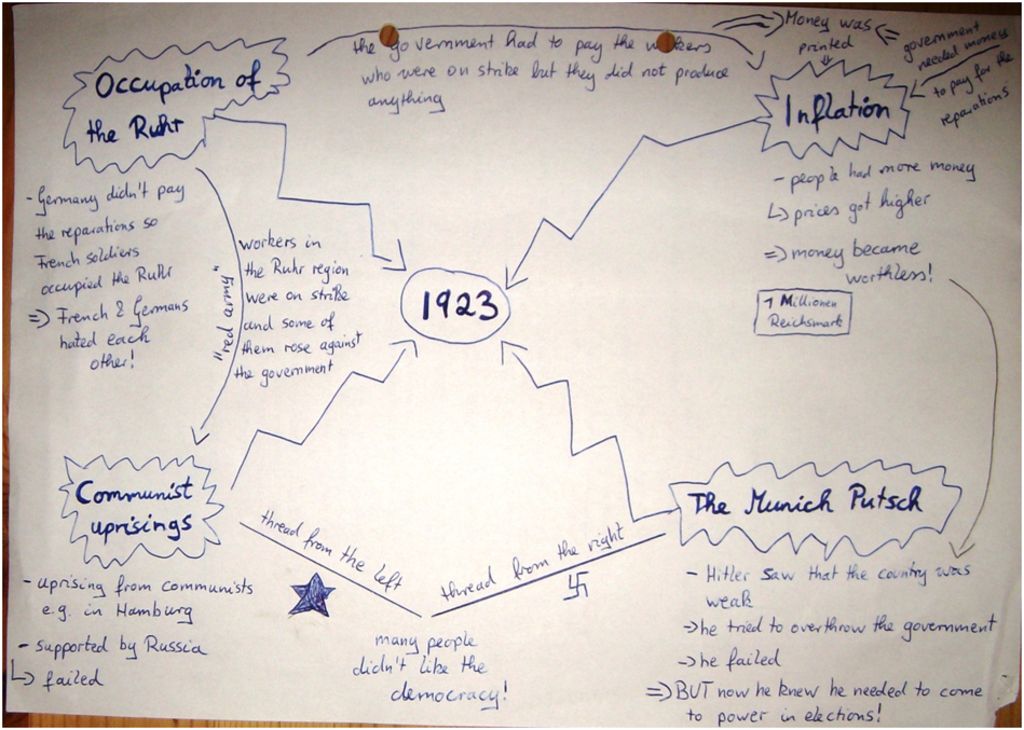 Occupation of
the Ruhr
the government had to pay the workers
who were on strike but they did not produce
anything
Money was
printed
government
needed money
to pay for the
reparations
Inflation
- people had more money
↳ prices got higher
⇒ money became
worthless!
1 Millionen
Reichsmark
- Germany didn't pay
the reparations so
French soldiers
occupied the Ruhr
⇒ French & Germans
hated each
other!
"red army"
workers in
the Ruhr region
were on strike
and some of
them rose against
the government
1923
Communist
uprisings
- uprising from communists
e.g. in Hamburg
- supported by Russia
↳ failed
thread from the left
thread from the right
many people
didn't like the
democracy!
The Munich Putsch
- Hitler saw that the country was
weak
→ he tried to overthrow the government
→ he failed
⇒ BUT now he knew he needed to come
to power in elections!